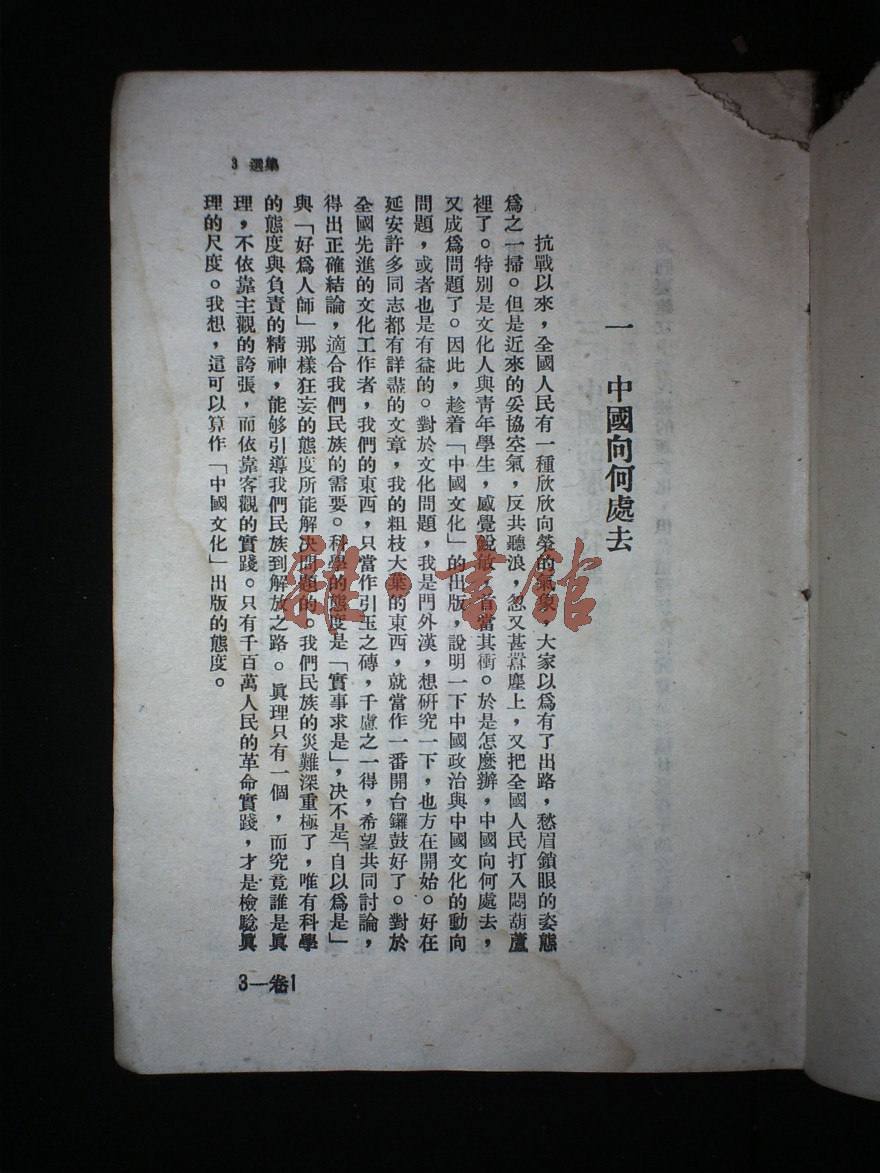 一 中國向何處去
抗戰以來，全國人民有一種欣欣向榮的氣象，大家以爲有了出路，愁眉鎖眼的姿態
爲之一掃。但是近來的妥協空氣，反共聽浪，忽又甚囂塵上，又把全國人民打入悶葫蘆
裡了。特別是文化人與靑年學生，感覺銳敏，首當其衝。於是怎麼辦，中國向何處去，
又成爲問題了。因此，趁着「中國文化」的出版，說明一下中國政治與中國文化的動向
問題，或者也是有益的。對於文化問題，我是門外漢，想研究一下，也方在開始。好在
延安許多同志都有詳盡的文章，我的粗枝大葉的東西，就當作一番開台鑼鼓好了。對於
全國先進的文化工作者，我們的東西，只當作引玉之磚，千慮之一得，希望共同討論，
得出正確結論，適合我們民族的需要。科學的態度是「實事求是」，决不是「自以爲是」
與「好爲人師」那樣狂妄的態度所能解决問題的。我們民族的災難深重極了，唯有科學
的態度與負責的精神，能够引導我們民族到解放之路。眞理只有一個，而究竟誰是眞
理，不依靠主觀的誇張，而依靠客觀的實踐。只有千百萬人民的革命實踐，才是檢驗眞
理的尺度。我想，這可以算作「中國文化」出版的態度。
3 選集
3—卷1
雜·書館